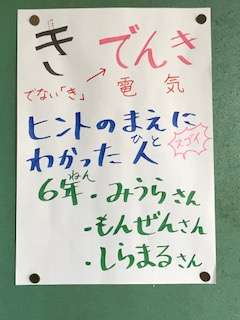 き → でんき
でない「き」 電気
ヒントのまえに
わかった人 スゴイ
ひと
6年・みうらさん
ねん
・もんぜんさん
・しらまるさん